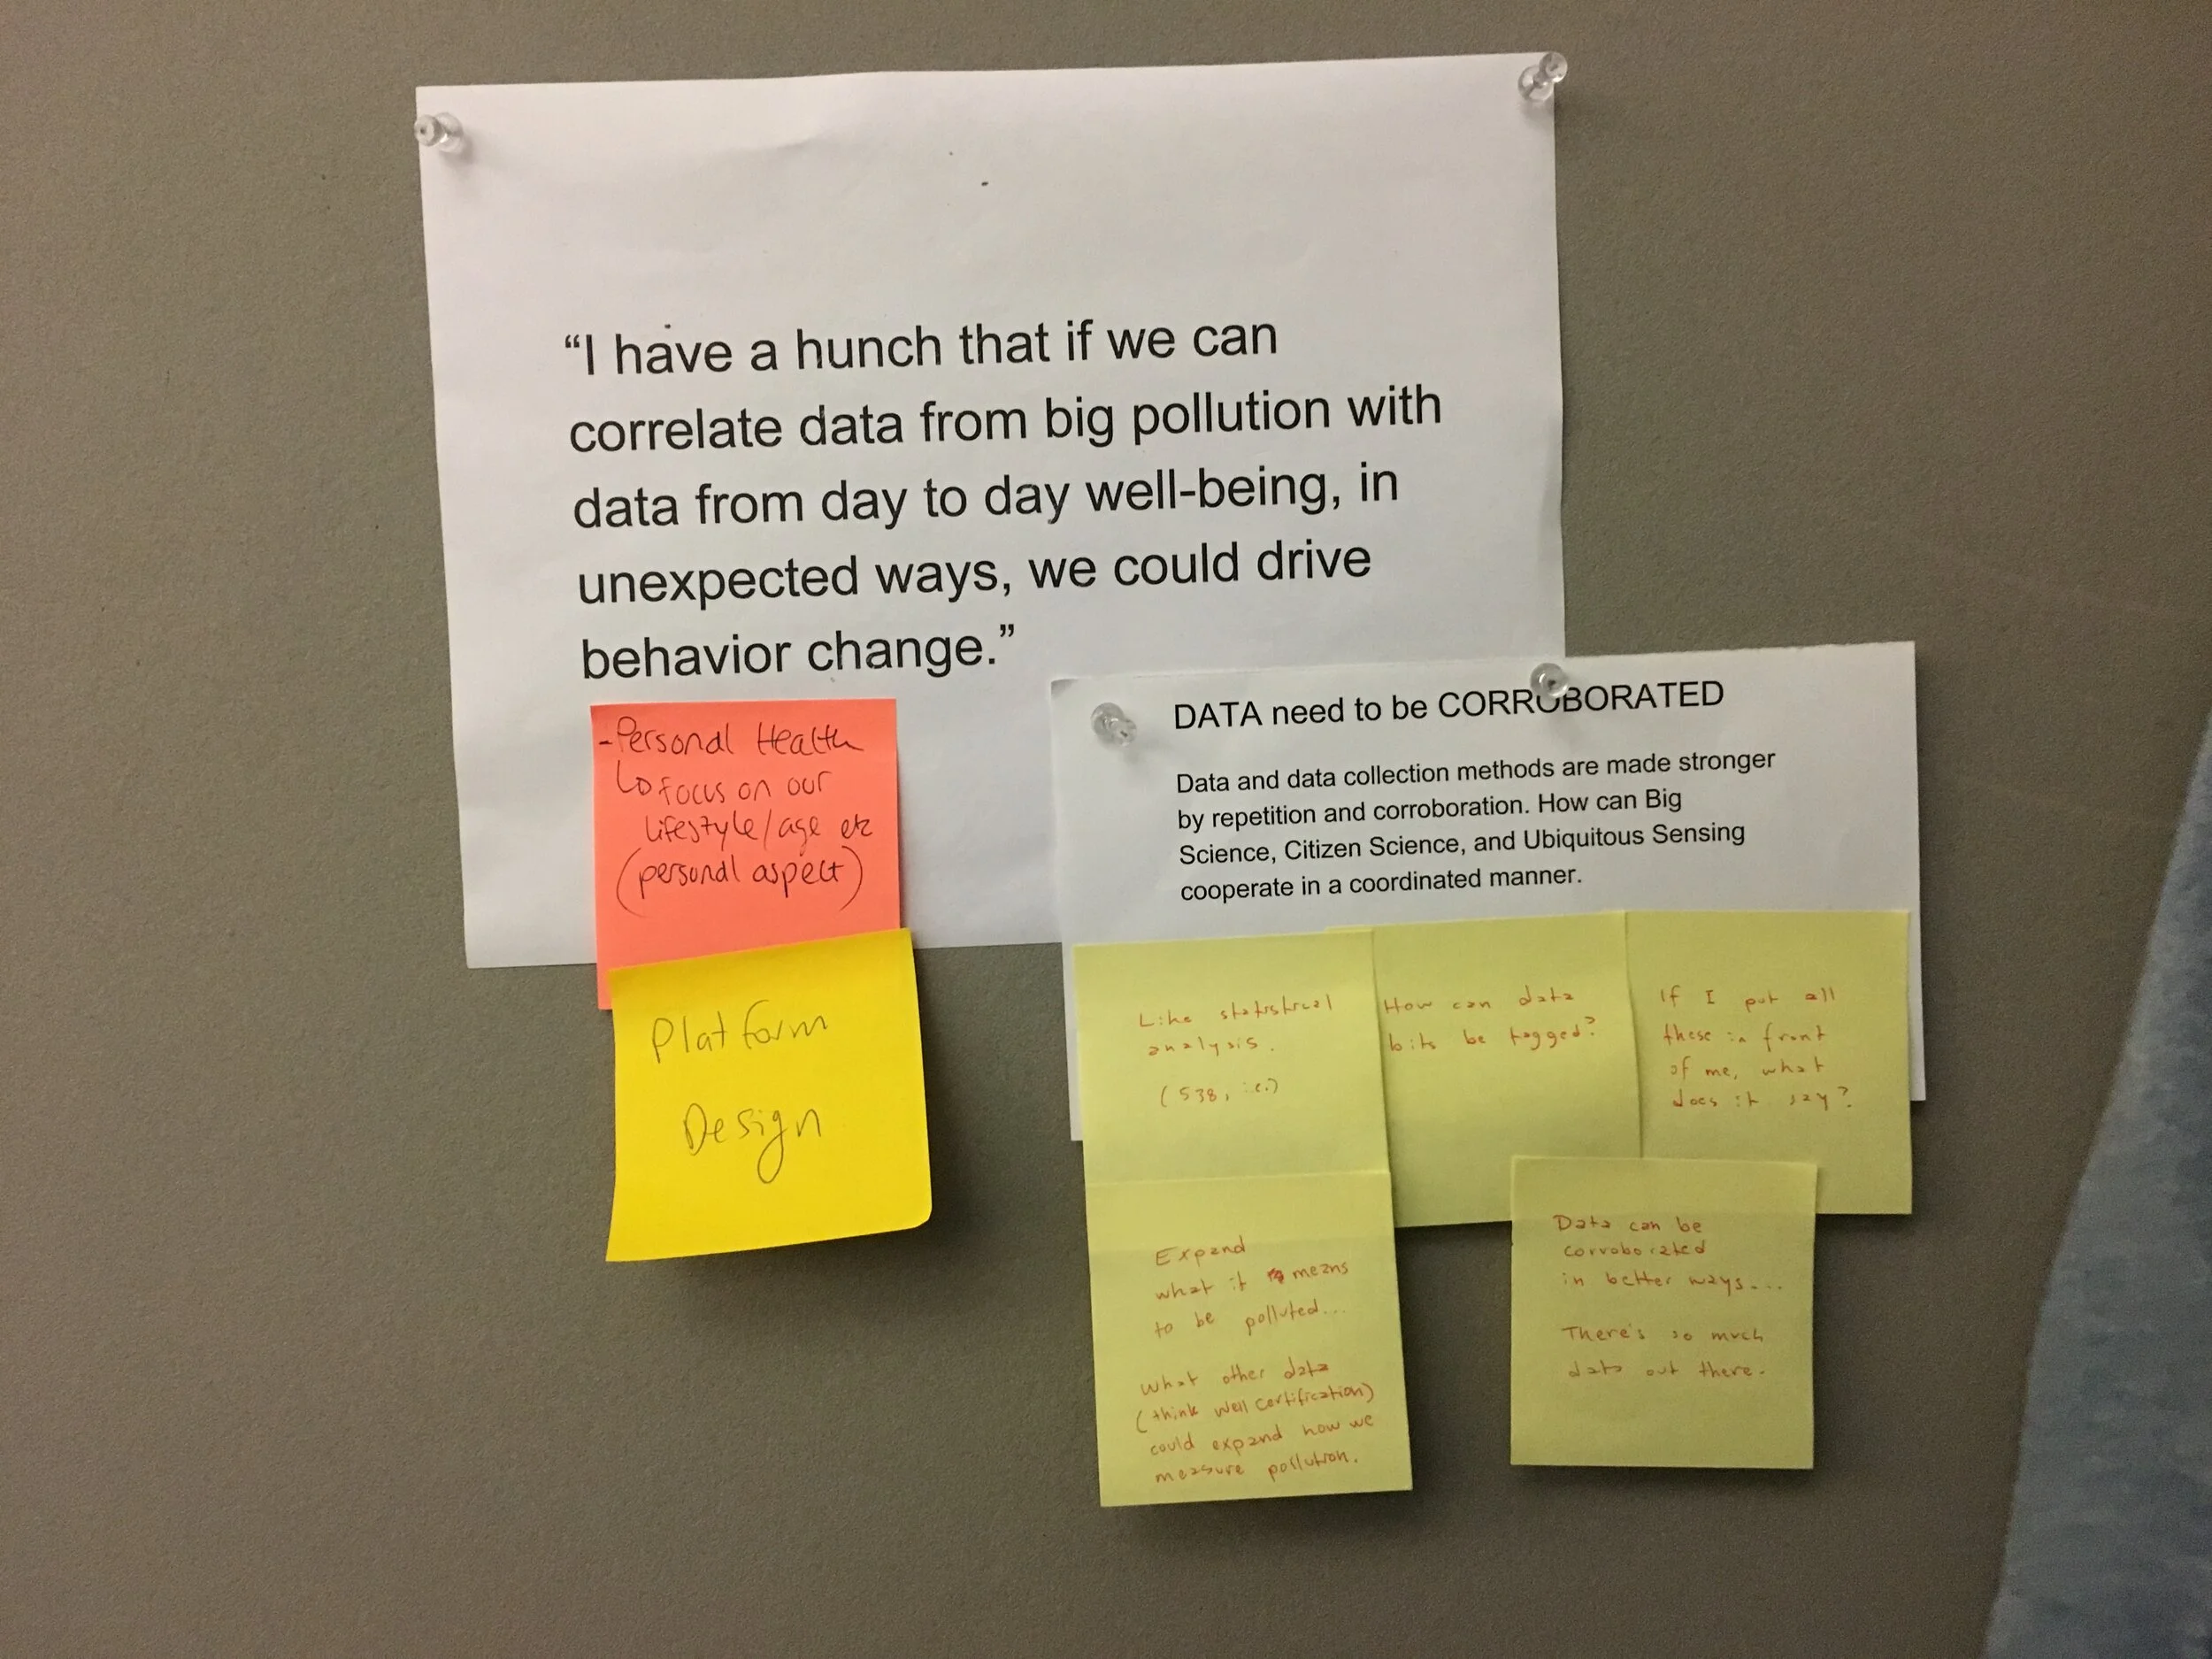 “I have a hunch that if we can
correlate data from big pollution with
data from day to day well-being, in
unexpected ways, we could drive
behavior change.”
-Personal Health
↳ focus on our
lifestyle/age etc
(personal aspect)
Platform
Design
DATA need to be CORROBORATED
Data and data collection methods are made stronger
by repetition and corroboration. How can Big
Science, Citizen Science, and Ubiquitous Sensing
cooperate in a coordinated manner.
Like statistical
analysis.
(538, i.e.)
How can data
bits be tagged?
If I put all
these in front
of me, what
does it say?
Expand
what it means
to be polluted...
what other data
(think well certification)
could expand how we
measure pollution.
Data can be
corroborated
in better ways....
There's so much
data out there.